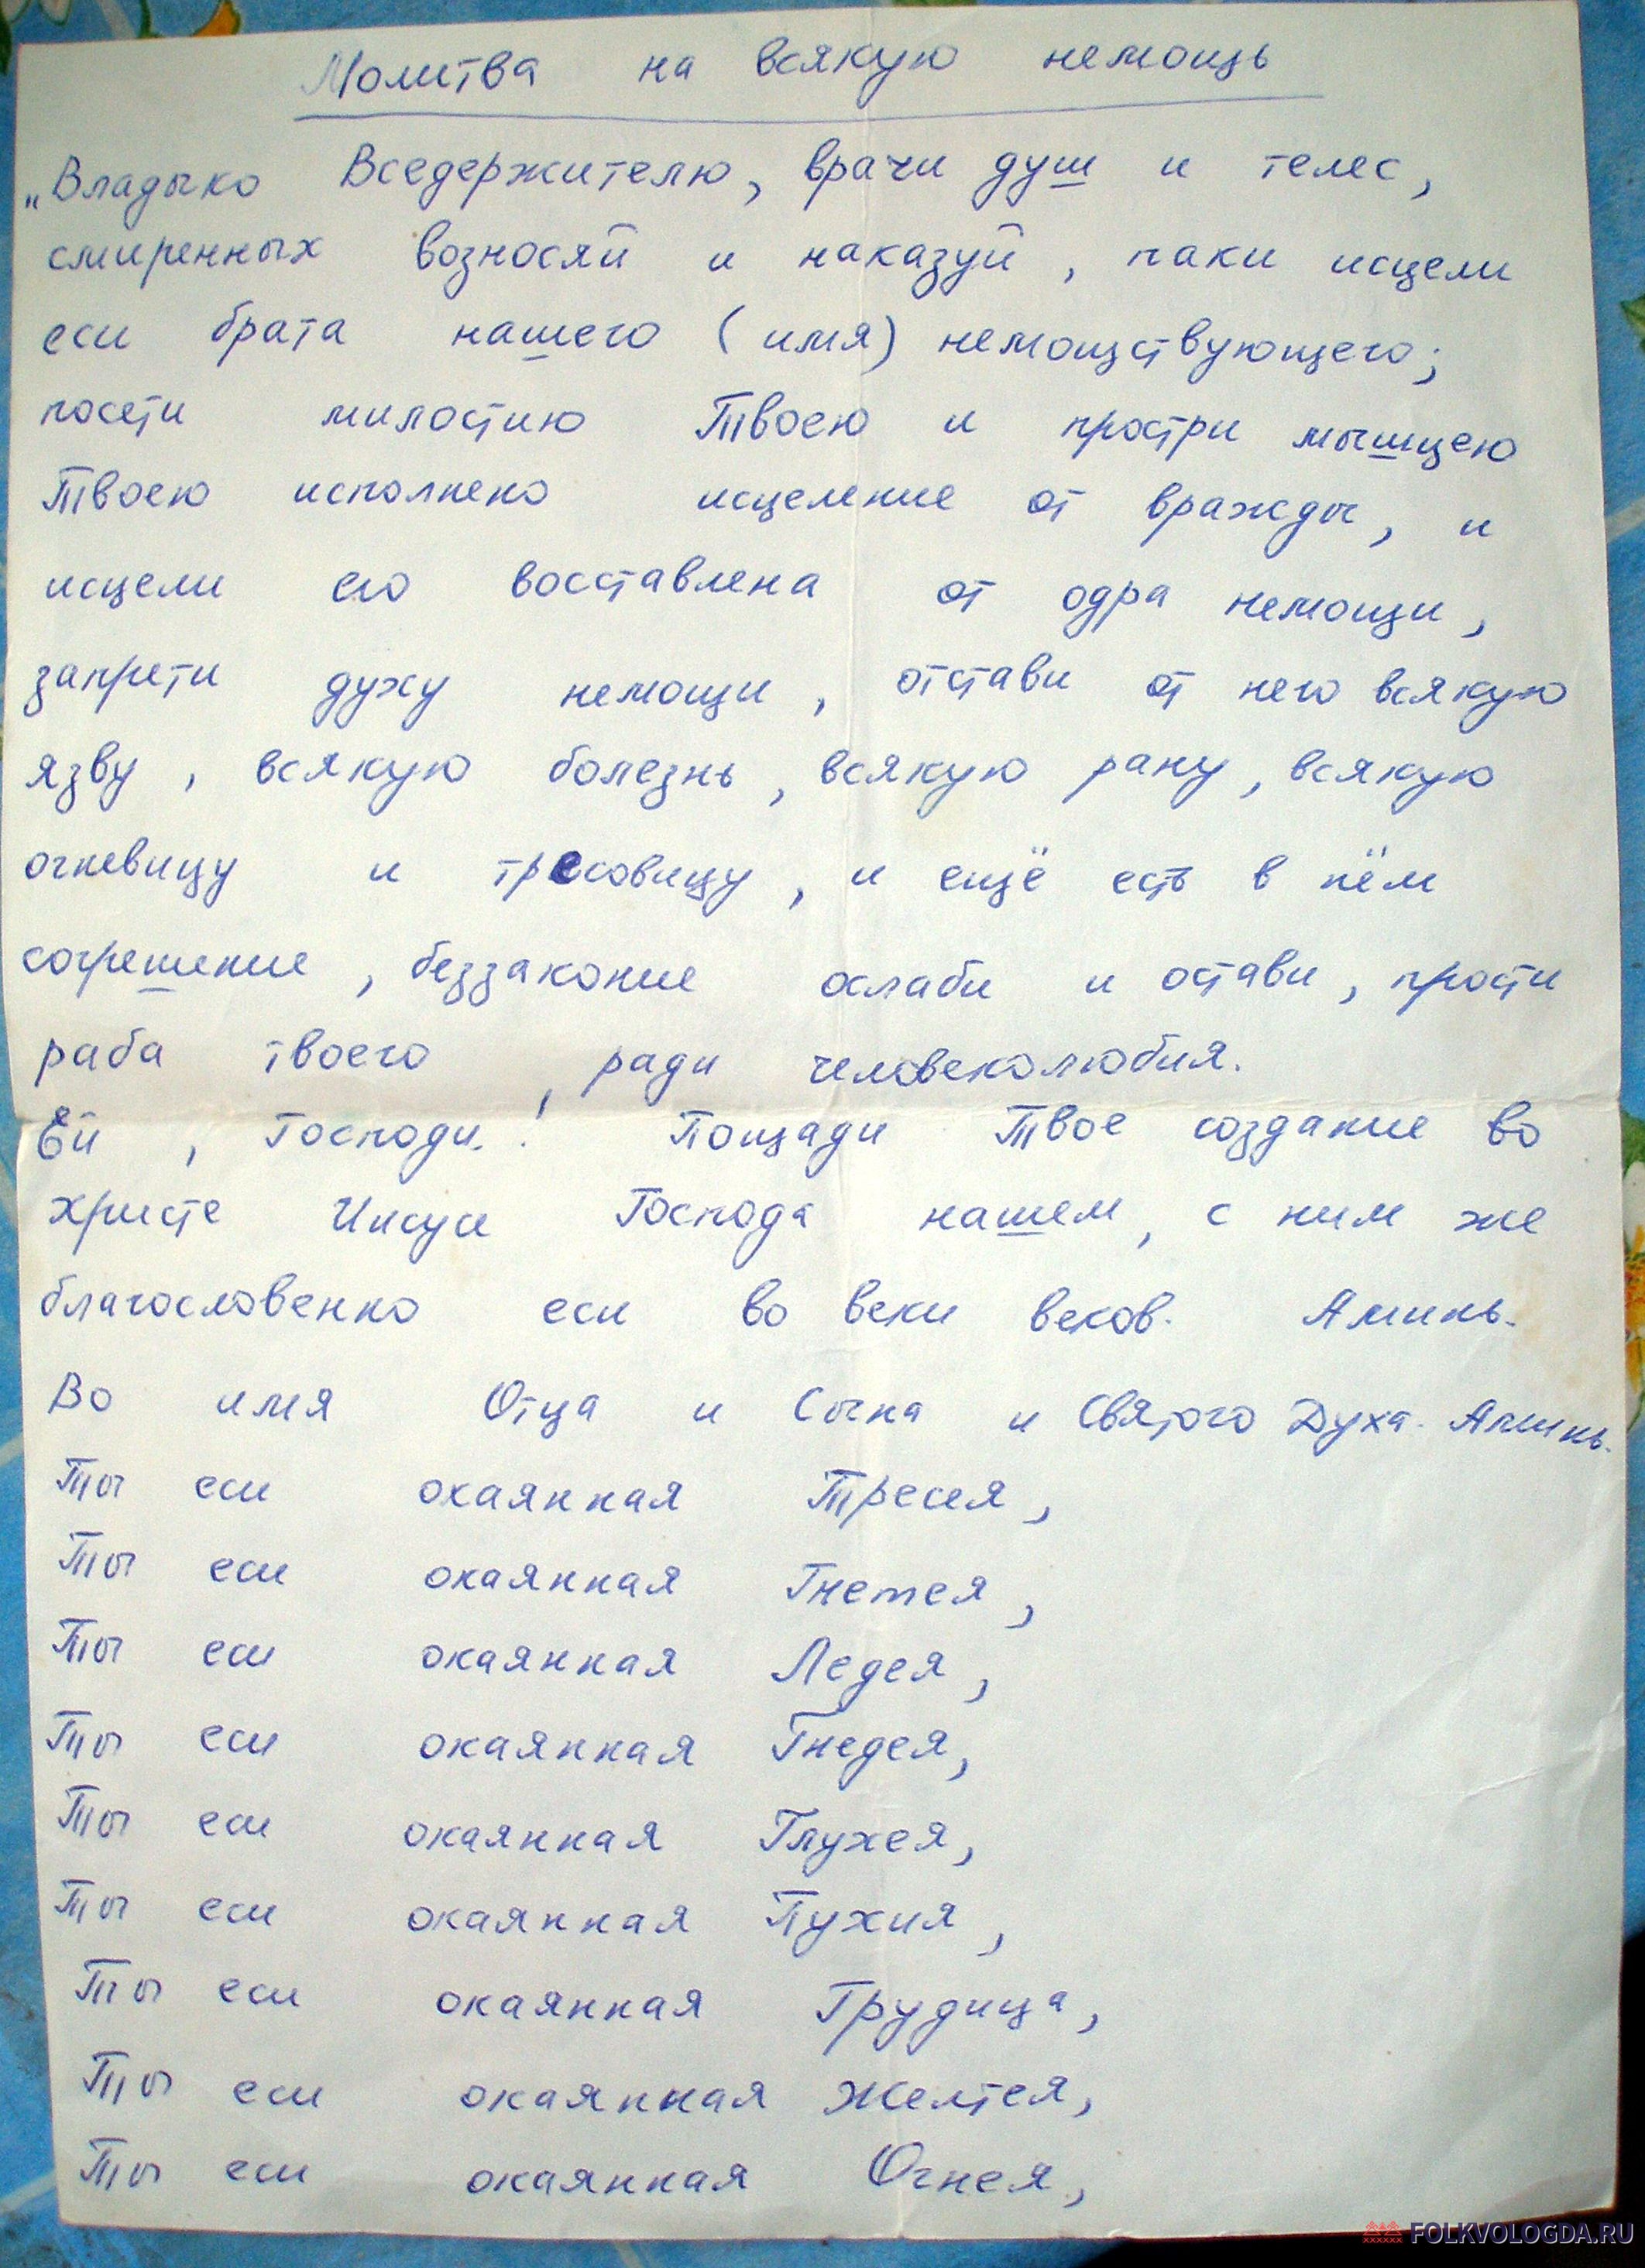 Молитва на всякую немощь
„Владыко Вседержителю, врачи душ и телес,
смиренных возносяй и наказуй, паки исцели
еси брата нашего (имя) немощствующего;
посети милостию Твоею и простри мышцею
Твоею исполнено исцеление от вражды, и
исцели его восставлена от одра немощи,
запрети духу немощи, отстави от него всякую
язву, всякую болезнь, всякую рану, всякую
огневицу и тресовицу, и ещё есть в нём
согрешение, беззаконие ослаби и остави, прости
раба твоего, ради человеколюбия.
Ей, Господи! Пощади Твое создание во
христе Иисусе Господа нашем, с ним же
благословенно еси во веки веков. Аминь.
Во имя Отца и Сына и Святого Духа. Аминь.
Ты еси окаянная Тресея,
Ты еси окаянная Гнетея,
Ты еси окаянная Ледея,
Ты еси окаянная Гнедея,
Ты еси окаянная Глухея,
Ты еси окаянная Пухия,
Ты еси окаянная Грудица,
Ты еси окаянная Желтея,
Ты еси окаянная Огнея,
FOLKVOLOGDA.RU